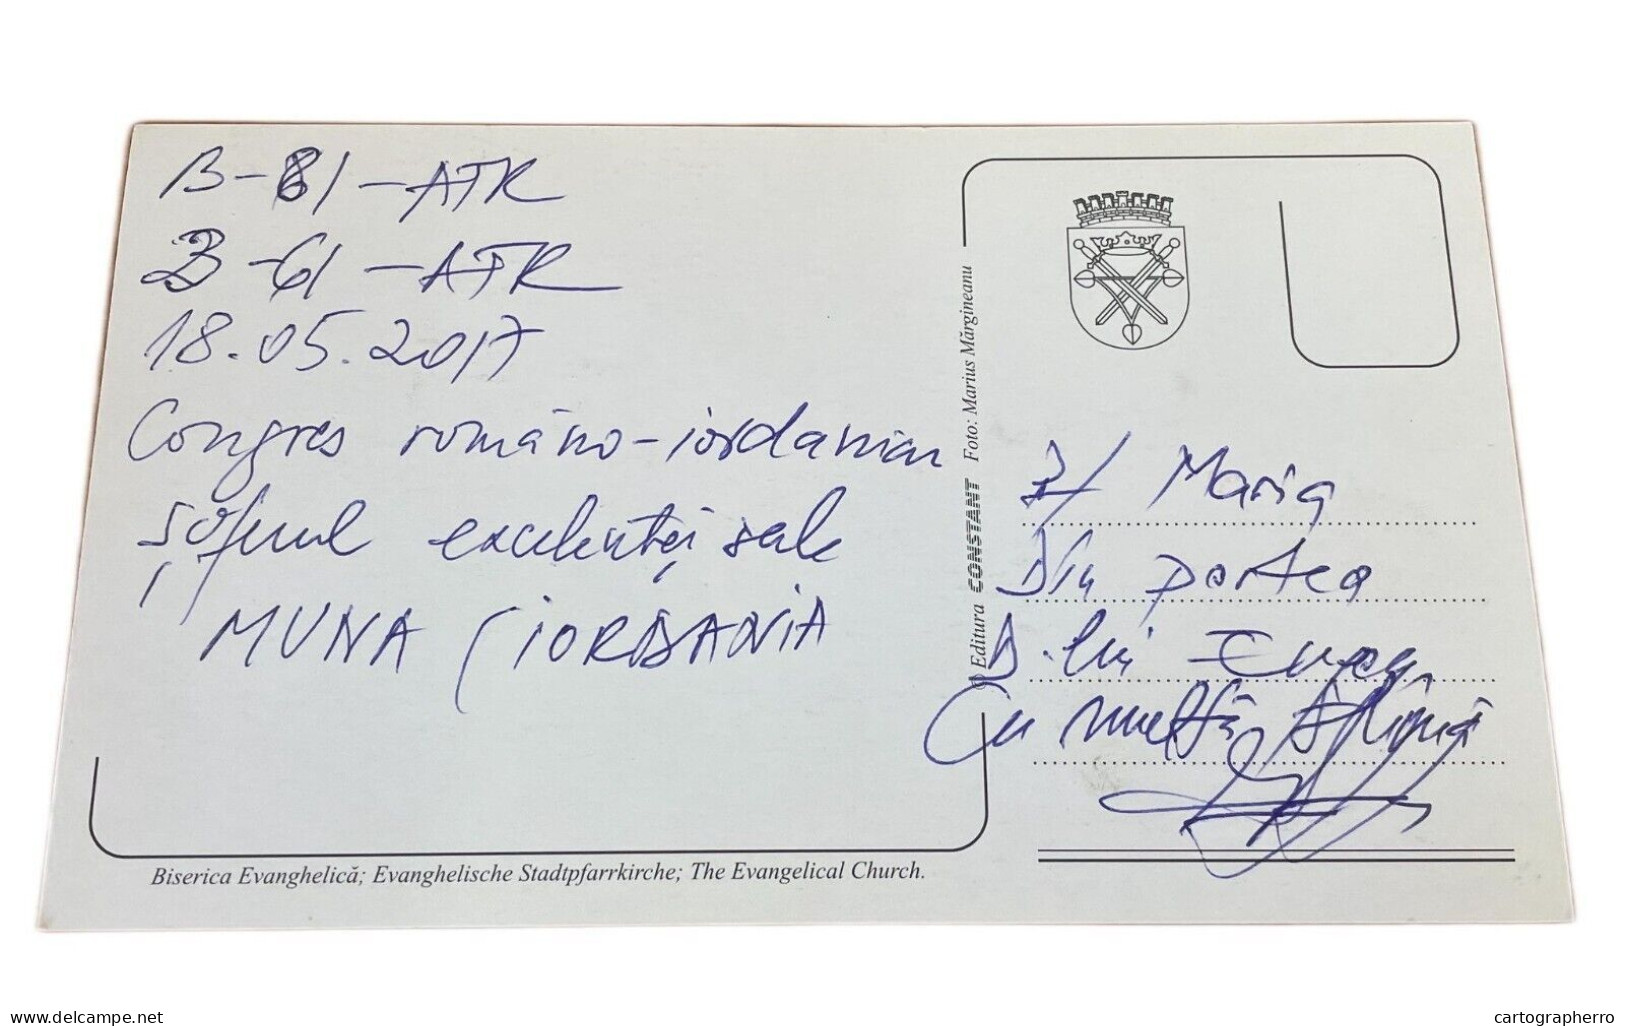 B-61-ATR
B-61-ATR
18.05.2017
Congres româno-iordanian
șoferul excelenței sale
MUNA (IORDANIA
Maria
Din partea
D-lui
Cu multă stimă
© Editura CONSTANT Foto: Marius Mărgineanu
Biserica Evanghelică; Evanghelische Stadtpfarrkirche; The Evangelical Church.
www.delcampe.net
cartographerro